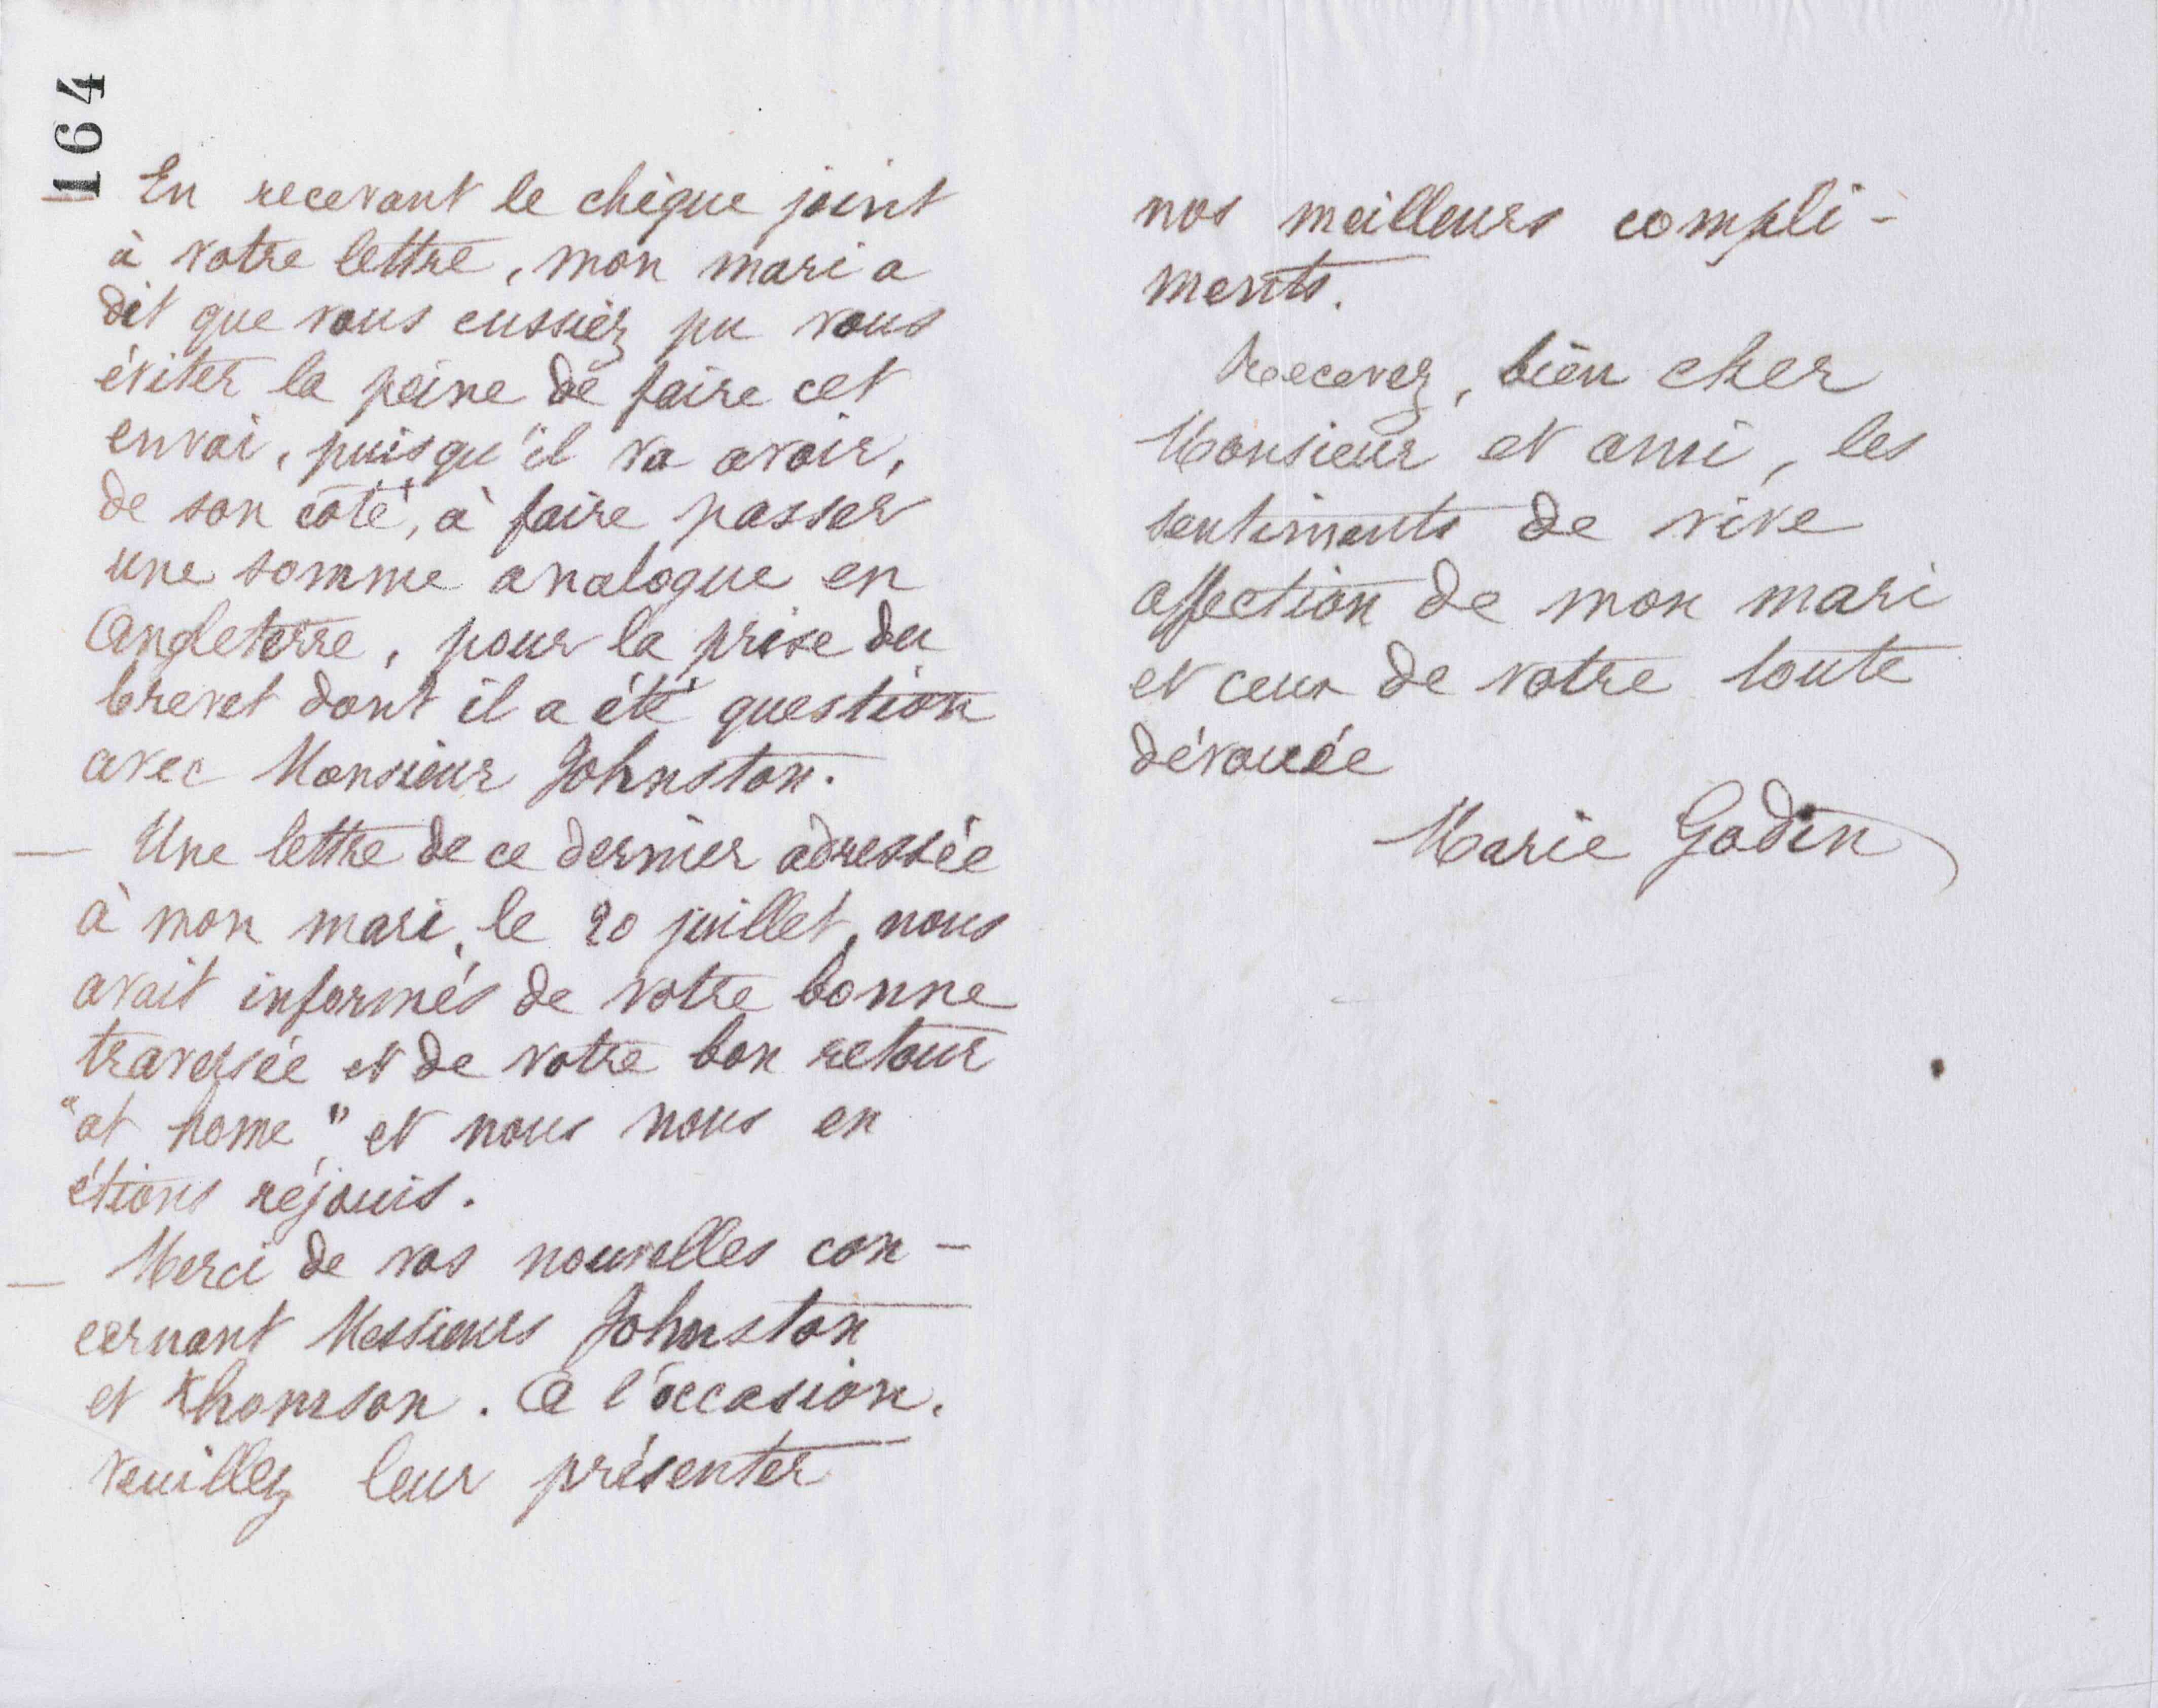 164
En recevant le chèque joint
à votre lettre, mon mari a
dit que vous eussiez pu vous
éviter la peine de faire cet
envoi, puisqu'il va avoir,
de son côté, à faire passer
une somme analogue en
Angleterre, pour la prise du
brevet dont il a été question
avec Monsieur Johnston.
— Une lettre de ce dernier adressée
à mon mari, le 20 juillet, nous
avait informés de votre bonne
traversée et de votre bon retour
"at home", et nous nous en
étions réjouis.
— Merci de vos nouvelles con-
cernant Messieurs Johnston
et Thomson. A l'occasion,
veuillez leur présenter
nos meilleurs compli-
ments.
Recevez, bien cher
Monsieur et ami, les
sentiments de vive
affection de mon mari
et ceux de votre toute
dévouée
Marie Godin